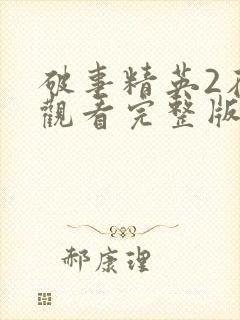 破事精英2
觀看完整版
郝康理